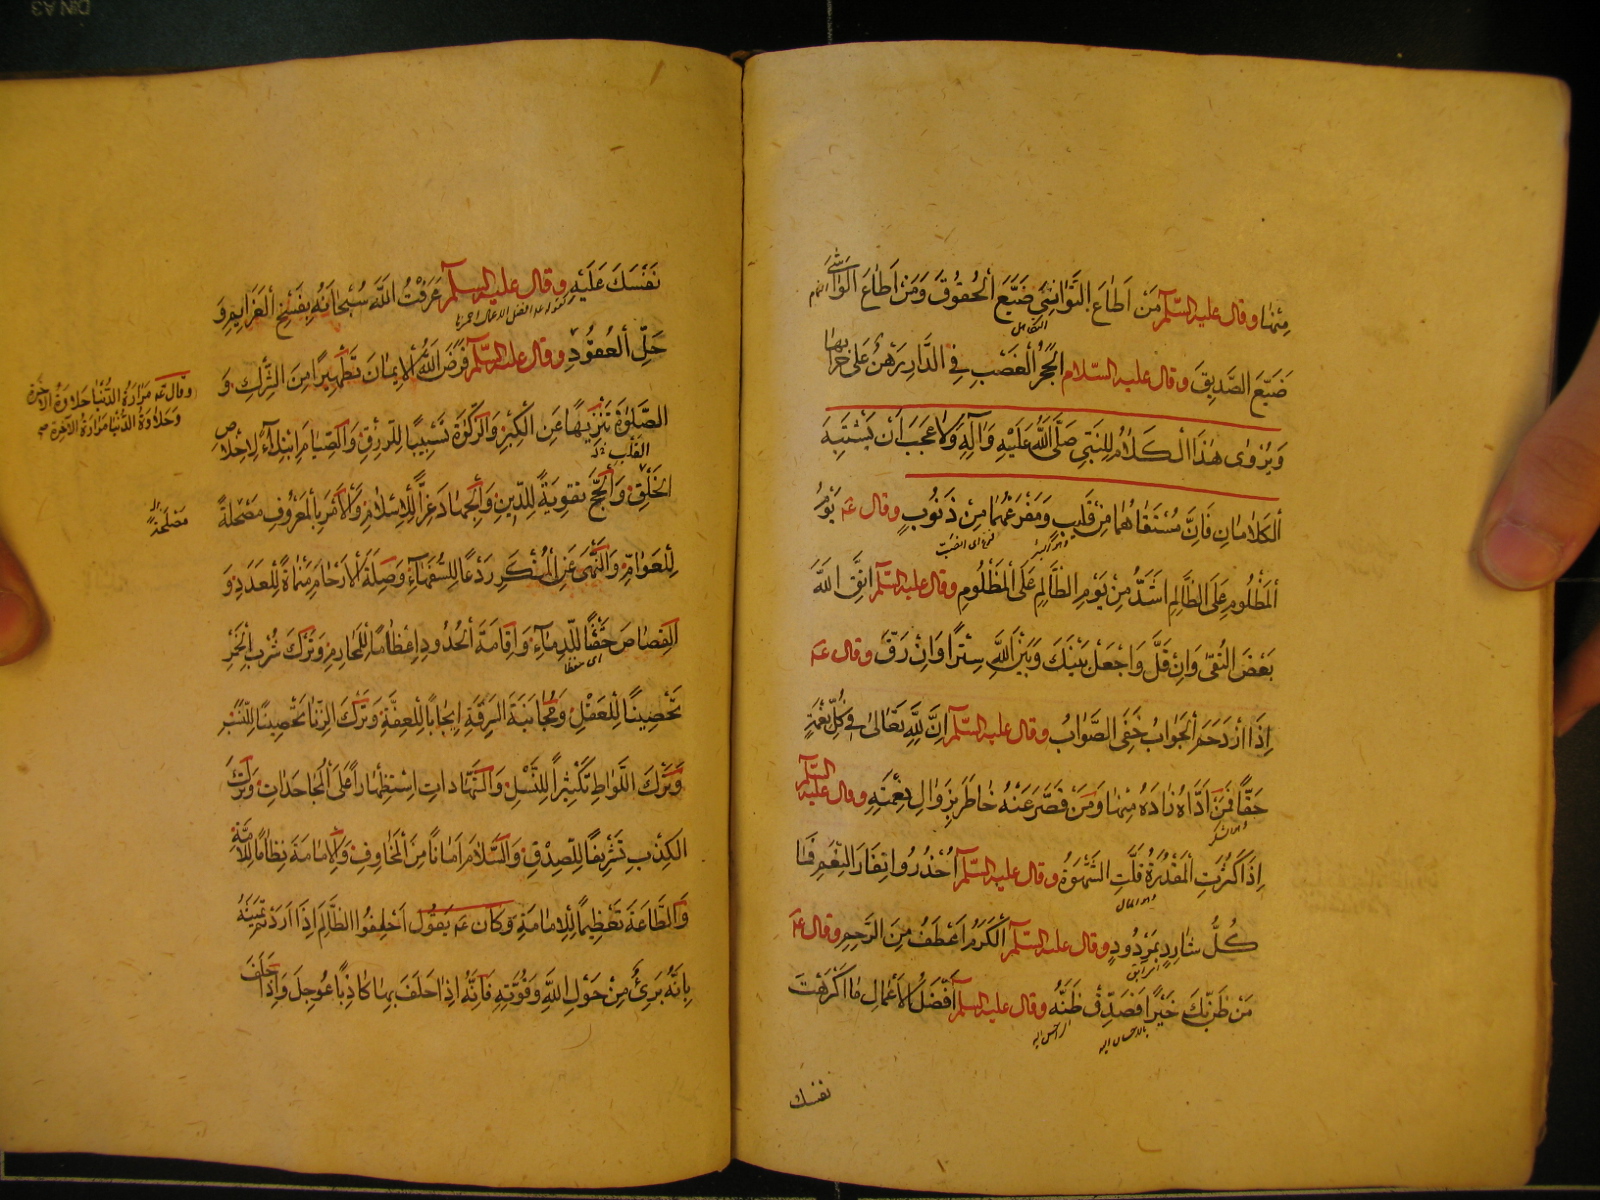 مِنْهَا وقال عليه السّلام مَنْ اَطَاعَ التَّوَانِيَ ضَيَّعَ اَلْحُقُوقَ وَمَنْ اَطَاعَ الْوَاشِيَ
ضَيَّعَ الصَّدِيقَ وقال عليه السّلام اَلْحَجَرُ الْغَصْبُ فِي الدَّارِ رَهْنٌ عَلَى خَرَابِهَا
وَيُرْوٰى هٰذَا الْكَلَامُ لِلنَّبِيِّ صَلَّى اللّٰهُ عَلَيْهِ وَآلِهِ وَلَا عَجَبَ اَنْ يَشْتَبِهَ
اَلْكَلَامَانِ فَاِنَّ مُسْتَقَاهُمَا مِنْ قَلِيبٍ وَمَفْرَغَهُمَا مِنْ ذَنُوبٍ وقال عم يَوْمُ
اَلْمَظْلُومِ عَلَى الظَّالِمِ اَشَدُّ مِنْ يَوْمِ الظَّالِمِ عَلَى الْمَظْلُومِ وقال عليه السّلم اتَّقِ اللّٰهَ
بَعْضَ التُّقٰى وَاِنْ قَلَّ وَاجْعَلْ بَيْنَكَ وَبَيْنَ اللّٰهِ سِتْرًا وَاِنْ رَقَّ وقال عم
اِذَا ازْدَحَمَ الْجَوَابُ خَفِيَ الصَّوَابُ وقال عليه السّلم اِنَّ لِلّٰهِ تَعَالٰى فِي كُلِّ نِعْمَةٍ
حَقًّا فَمَنْ اَدَّاهُ زَادَهُ مِنْهَا وَمَنْ قَصَّرَ عَنْهُ خَاطَرَ بِزَوَالِ نِعْمَتِهِ وقال عليه السّلم
اِذَا كَثُرَتِ الْمَقْدُرَةُ قَلَّتِ الشَّهْوَةُ وقال عليه السّلم اُحْذُرُوا نِفَارَ النِّعَمِ فَمَا
كُلُّ شَارِدٍ بِمَرْدُودٍ وقال عليه السّلم اَلْكَرَمُ اَعْطَفُ مِنَ الرَّحِمِ وقال عم
مَنْ ظَنَّ بِكَ خَيْرًا فَصَدِّقْ ظَنَّهُ وقال عليه السلم اَفْضَلُ الْاَعْمَالِ مَا اَكْرَهْتَ
نفسك
نَفْسَكَ عَلَيْهِ وقال عليه السلم عَرَفْتُ اللّٰهَ سُبْحَانَهُ بِفَسْخِ الْعَزَايِمِ وَ
حَلِّ الْعُقُودِ وقال عليه السّلم فَرَضَ اللّٰهُ الْاِيمَانَ تَطْهِيرًا مِنَ الشِّرْكِ وَ
الصَّلٰوةَ تَنْزِيهًا عَنِ الْكِبْرِ وَالزَّكٰوةَ تَسْبِيبًا لِلرِّزْقِ وَالصِّيَامَ ابْتِلَاءً لِاِخْلَاصِ
الْخَلْقِ وَالْحَجَّ تَقْوِيَةً لِلدِّينِ وَالْجِهَادَ عِزًّا لِلْاِسْلَامِ وَالْاَمْرَ بِالْمَعْرُوفِ مَصْلَحَةً
لِلْعَوَامِّ وَالنَّهْيَ عَنِ الْمُنْكَرِ رَدْعًا لِلسُّفَهَاءِ وَصِلَةَ الْاَرْحَامِ مَنْمَاةً لِلْعَدَدِ وَ
الْقِصَاصَ حَقْنًا لِلدِّمَاءِ وَاِقَامَةَ الْحُدُودِ اِعْظَامًا لِلْمَحَارِمِ وَتَرْكَ شُرْبِ الْخَمْرِ
تَحْصِينًا لِلْعَقْلِ وَمُجَانَبَةَ السَّرِقَةِ اِيجَابًا لِلْعِفَّةِ وَتَرْكَ الزِّنَا تَحْصِينًا لِلنَّسَبِ
وَتَرْكَ اللِّوَاطِ تَكْثِيرًا لِلنَّسْلِ وَالشَّهَادَاتِ اِسْتِظْهَارًا عَلَى الْمُجَاحَدَاتِ وَتَرْكَ
الْكِذْبِ تَشْرِيفًا لِلصِّدْقِ وَالسَّلَامَ اَمَانًا مِنَ الْمَخَاوِفِ وَالْاِمَامَةَ نِظَامًا لِلْاُمَّةِ
وَالطَّاعَةَ تَعْظِيمًا لِلْاِمَامَةِ وَكَان عم يَقُول اَحْلِفُوا الظَّالِمَ اِذَا اَرَدْتُمْ يَمِينَهُ
بِاَنَّهُ بَرِئٌ مِنْ حَوْلِ اللّٰهِ وَقُوَّتِهِ فَاِنَّهُ اِذَا حَلَفَ بِهَا كَاذِبًا عُوجِلَ وَاِذَا حَلَفَ
وقال عم مَرَارَةُ الدُّنْيَا حَلَاوَةُ الْآخِرَةِ
وَحَلَاوَةُ الدُّنْيَا مَرَارَةُ الْآخِرَةِ
مَصْلَحَةً